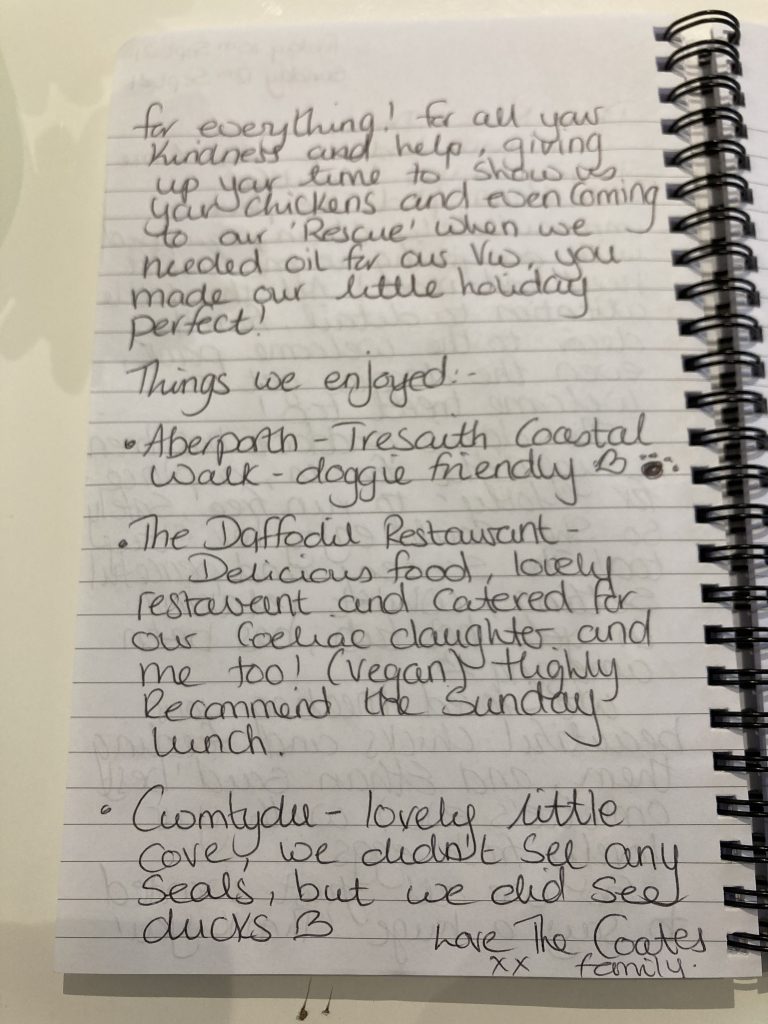 for everything! for all your
kindness and help, giving
up your time to show us
your chickens and even coming
to our 'Rescue' when we
needed oil for our VW, you
made our little holiday
perfect!
Things we enjoyed:-
• Aberporth - Tresaith Coastal
Walk - doggie friendly
• The Daffodil Restaurant -
Delicious food, lovely
restaurant and catered for
our Coeliac daughter and
me too! (vegan) Highly
Recommend the Sunday
lunch.
• Cwmtydu - lovely little
cove, we didn't see any
Seals, but we did see
ducks
Love The Coates
xx family.